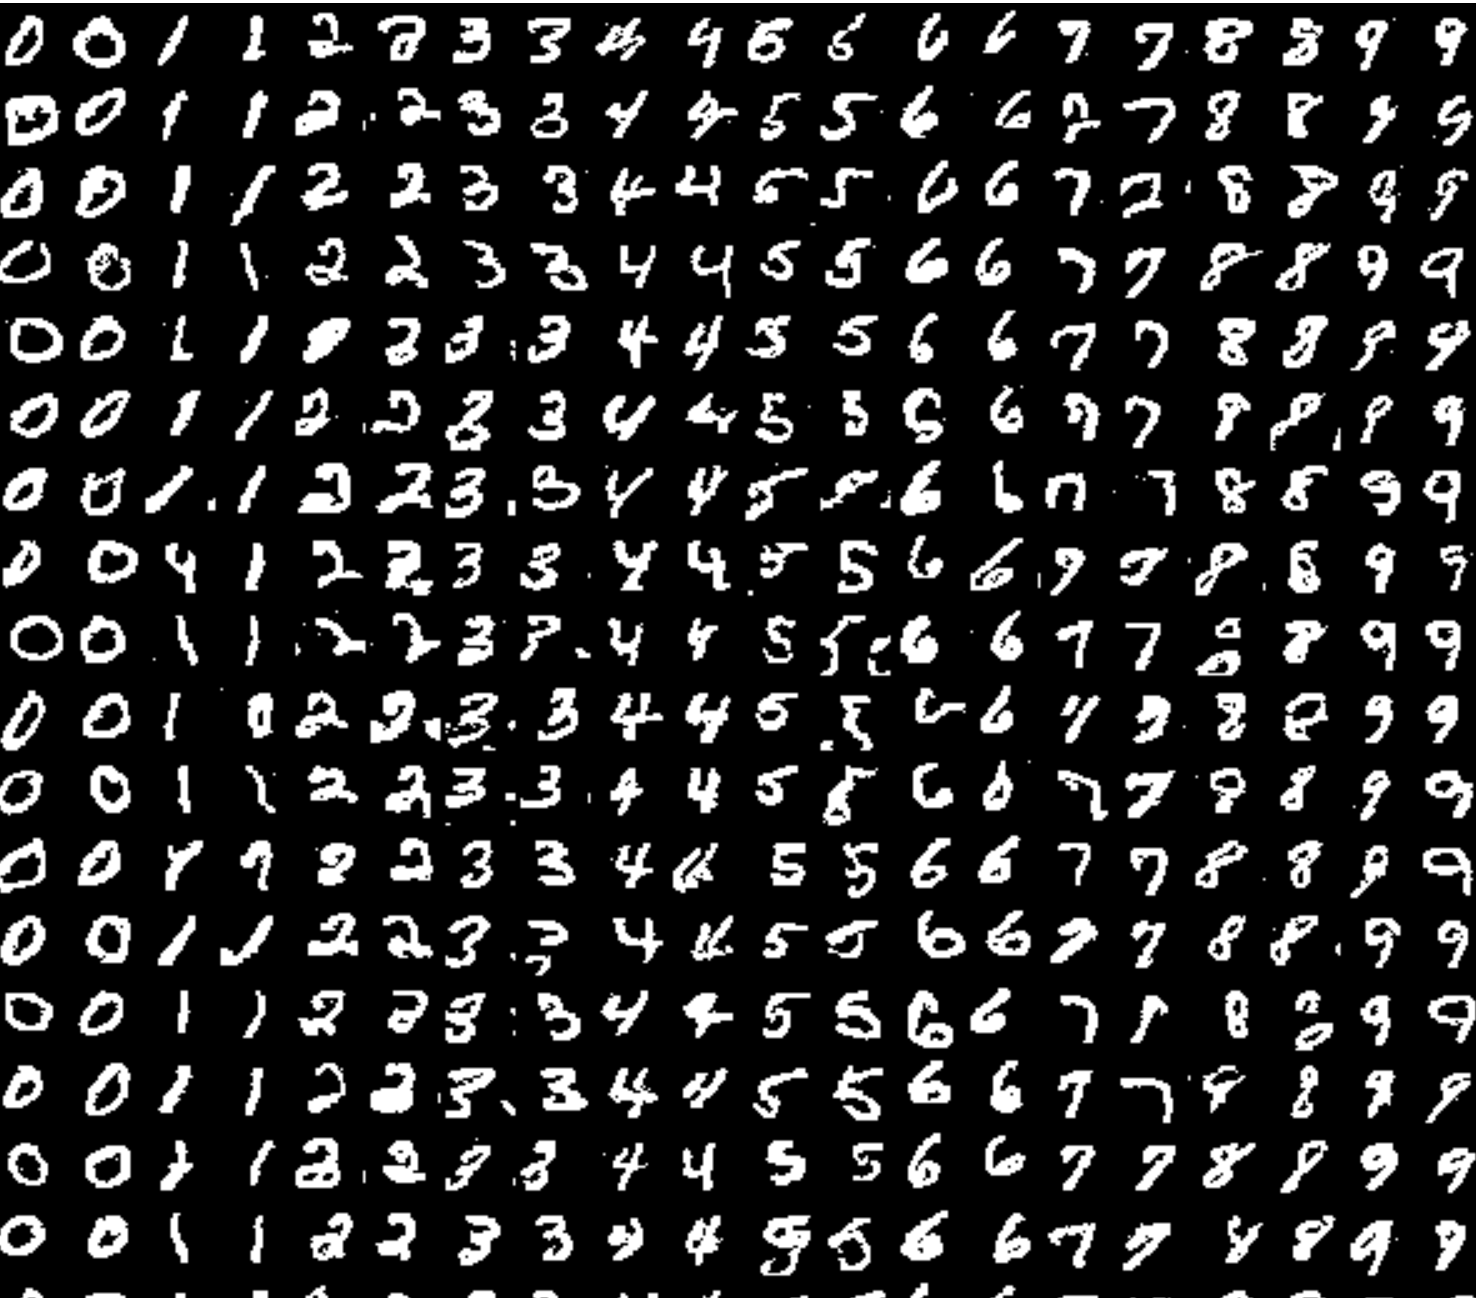 0 0 1 1 2 2 3 3 4 4 5 5 6 6 7 7 8 8 9 9
0 0 1 1 2 2 3 3 4 4 5 5 6 6 7 7 8 8 9 9
0 0 1 1 2 2 3 3 4 4 5 5 6 6 7 7 8 8 9 9
0 0 1 1 2 2 3 3 4 4 5 5 6 6 7 7 8 8 9 9
0 0 1 1 2 3 3 4 4 5 5 6 6 7 7 8 8 9 9
0 0 1 1 2 2 3 3 4 4 5 5 6 6 7 7 8 8 9 9
0 0 1 1 2 2 3 3 4 4 5 6 6 7 7 8 8 9 9
0 0 4 1 2 2 3 3 4 4 5 5 6 6 7 7 8 8 9 9
0 0 1 1 2 2 3 3 4 4 5 5 6 6 7 7 8 8 9 9
0 0 1 2 2 3 3 4 4 5 5 6 6 7 7 8 8 9 9
0 0 1 1 2 2 3 3 4 4 5 5 6 6 7 7 8 8 9 9
0 0 1 1 2 2 3 3 4 4 5 5 6 6 7 7 8 8 9 9
0 0 1 1 2 2 3 3 4 4 5 5 6 6 7 7 8 8 9 9
0 0 1 1 2 2 3 3 4 4 5 5 6 6 7 7 8 8 9 9
0 0 1 1 2 2 3 3 4 4 5 5 6 6 7 7 8 8 9 9
0 0 1 1 2 2 3 3 4 4 5 5 6 6 7 7 8 8 9 9
0 0 1 1 2 2 3 3 4 4 5 5 6 6 7 7 8 8 9 9